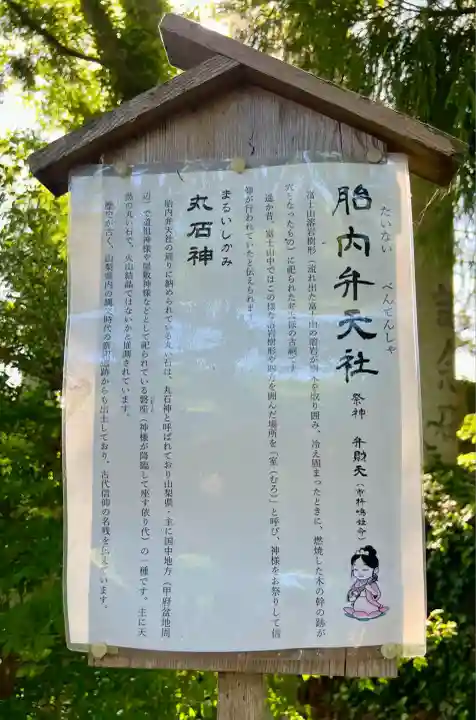 胎内弁天社
たいない べんてんしゃ
祭神 弁財天(市杵嶋姫命)
富士山溶岩樹形(流れ出た富士山の溶岩が樹木を取り囲み、冷え固まったときに、燃焼した木の幹の跡が
穴となったもの)に祀られた弁天様の古祠です。
遥か昔、富士山中ではこの様な溶岩樹形や四方を囲んだ場所を「室(むろ)」と呼び、神様をお祭りして信
仰が行われていたと伝えられます。
丸石神
まるいしかみ
胎内弁天社の周りに納められている丸い石は、丸石神と呼ばれており山梨県・主に国中地方(甲府盆地周
辺)で道祖神様や屋敷神様などとして祀られている磐座(神様が降臨して座す依り代)の一種です。主に天
然の丸い石で、火山結晶ではないかと推測されています。
歴史が古く、山梨県内の縄文時代の遺跡からも出土しており、古代信仰の名残を伝えています。